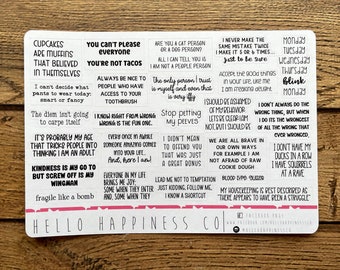 CUPCAKES
ARE MUFFINS
THAT BELIEVED
IN THEMSELVES
You can't Please
everyone
You're not Tacos
ARE YOU A CAT PERSON
OR A DOG PERSON?
ALL I CAN TELL YOU IS
I AM NOT A PEOPLE PERSON
I NEVER MAKE THE
SAME MISTAKE TWICE
I MAKE IT 5 OR 6 TIMES...
just to be sure
Monday
Tuesday
Wednesday
Thursday
blink
Monday
I can't decide what
pants to wear today:
smart or fancy
ALWAYS BE NICE TO
PEOPLE WHO HAVE
ACCESS TO YOUR
TOOTHBRUSH
The only person I trust
is myself and even that
is very iffy
Accept the good things
in your life like me
I am freaking delight
The diem isn't going
to carpe itself
I KNOW RIGHT FROM WRONG
WRONG IS THE FUN ONE.
Stop petting
my peeves
I SHOULD BE ASHAMED
OF MY BEHAVIOR.
LET'S BE CLEAR I'M
NOT, BUT I SHOULD BE
I DON'T ALWAYS DO THE
WRONG THING, BUT WHEN
I DO ITS THE WRONGEST
OF ALL THE WRONG THAT
EVER WRONGED.
IT'S PROBABLY MY AGE
THAT TRICKS PEOPLE INTO
THINKING I AM AN ADULT
EVERY ONCE IN AWHILE
SOMEONE AMAZING COMES
INTO YOUR LIFE...
And, here I am!
I DIDN'T MEAN
TO OFFEND YOU
THAT WAS JUST
A GREAT BONUS
WE ARE ALL BRAVE IN
OUR OWN WAYS
FOR EXAMPLE I AM
NOT AFRAID OF RAW
COOKIE DOUGH
I DON'T HAVE
MY DUCKS IN
A ROW I HAVE
SQUIRRELS AT
A RAVE
KINDNESS IS MY GO TO
BUT SCREW OFF IS MY
WINGMAN
EVERYONE IN MY LIFE
BRINGS ME JOY:
SOME WHEN THEY ENTER
AND SOME, WHEN THEY
LEAD ME NOT TO TEMPTATION
JUST KIDDING, FOLLOW ME,
I KNOW A SHORTCUT
fragile like a bomb
MY HOUSEKEEPING IS BEST DESCRIBED AS
"THERE APPEARS TO HAVE BEEN A STRUGGLE"
HELLO HAPPINESS CO